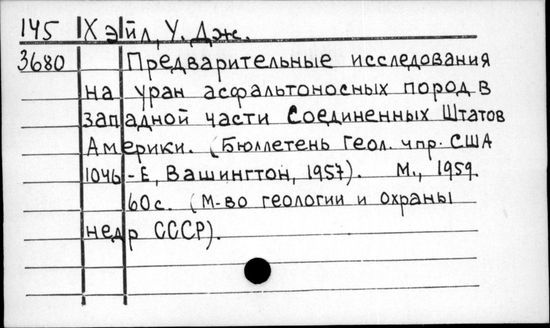 145 Хэйл, У. Дж.
3680 Предварительные исследования
на уран асфальтоносных пород в
западной части Соединенных Штатов
Америки. (Бюллетень Геол. упр. США
1046-Е, Вашингтон, 1957). М., 1959.
60с. (М-во геологии и охраны
недр СССР).